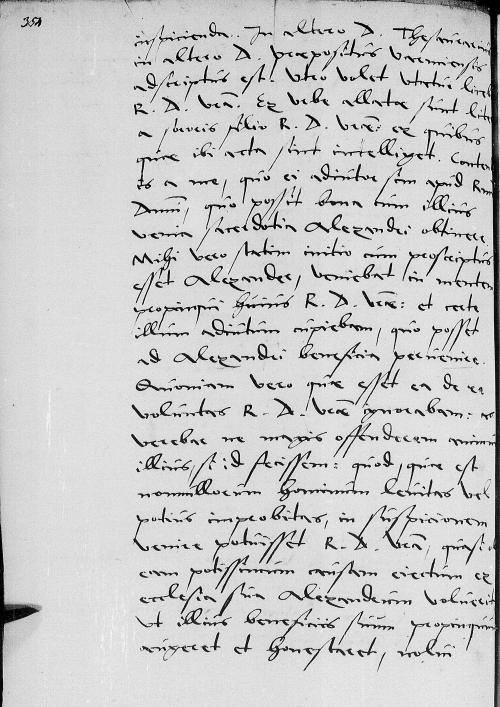 354
inspicienda. In altero D. Thesaurarius
in altero D. praepositus Varmiensis
adscriptus est. Utro volet utatur licebit
R. D. Vrae. Ex urbe allatae sunt literae
a soceris filio R. D. Vrae: ex quibus
quae ibi acta sint intelliget. Conten
is a me, quo ei adiutor sim apud Ram
Dnm, quo possit bona cum illius
venia sacerdotia Alexandri obtinere
Mihi vero statim initio cum proscriptus
esset Alexander, veniebat in mentem
propinqui huius R. D. Vrae: et certe
illum adiutum cupiebam, quo posset
ad Alexandri beneficia pervenire.
Quoniam vero quae esset ea de re
voluntas R. D. Vrae ignorabam:
verebar ne magis offenderem animum
illius, si id fecissem: quod, quae est
nonnullorum hominum levitas vel
potius improbitas, in suspicionem
venire potuisset R. D. Vra, quasi ob
eam potissimum causam eiectum ex
ecclesia sua Alexandrum voluerit
ut illius beneficiis suum propinquum
augeret et honestaret, nolui